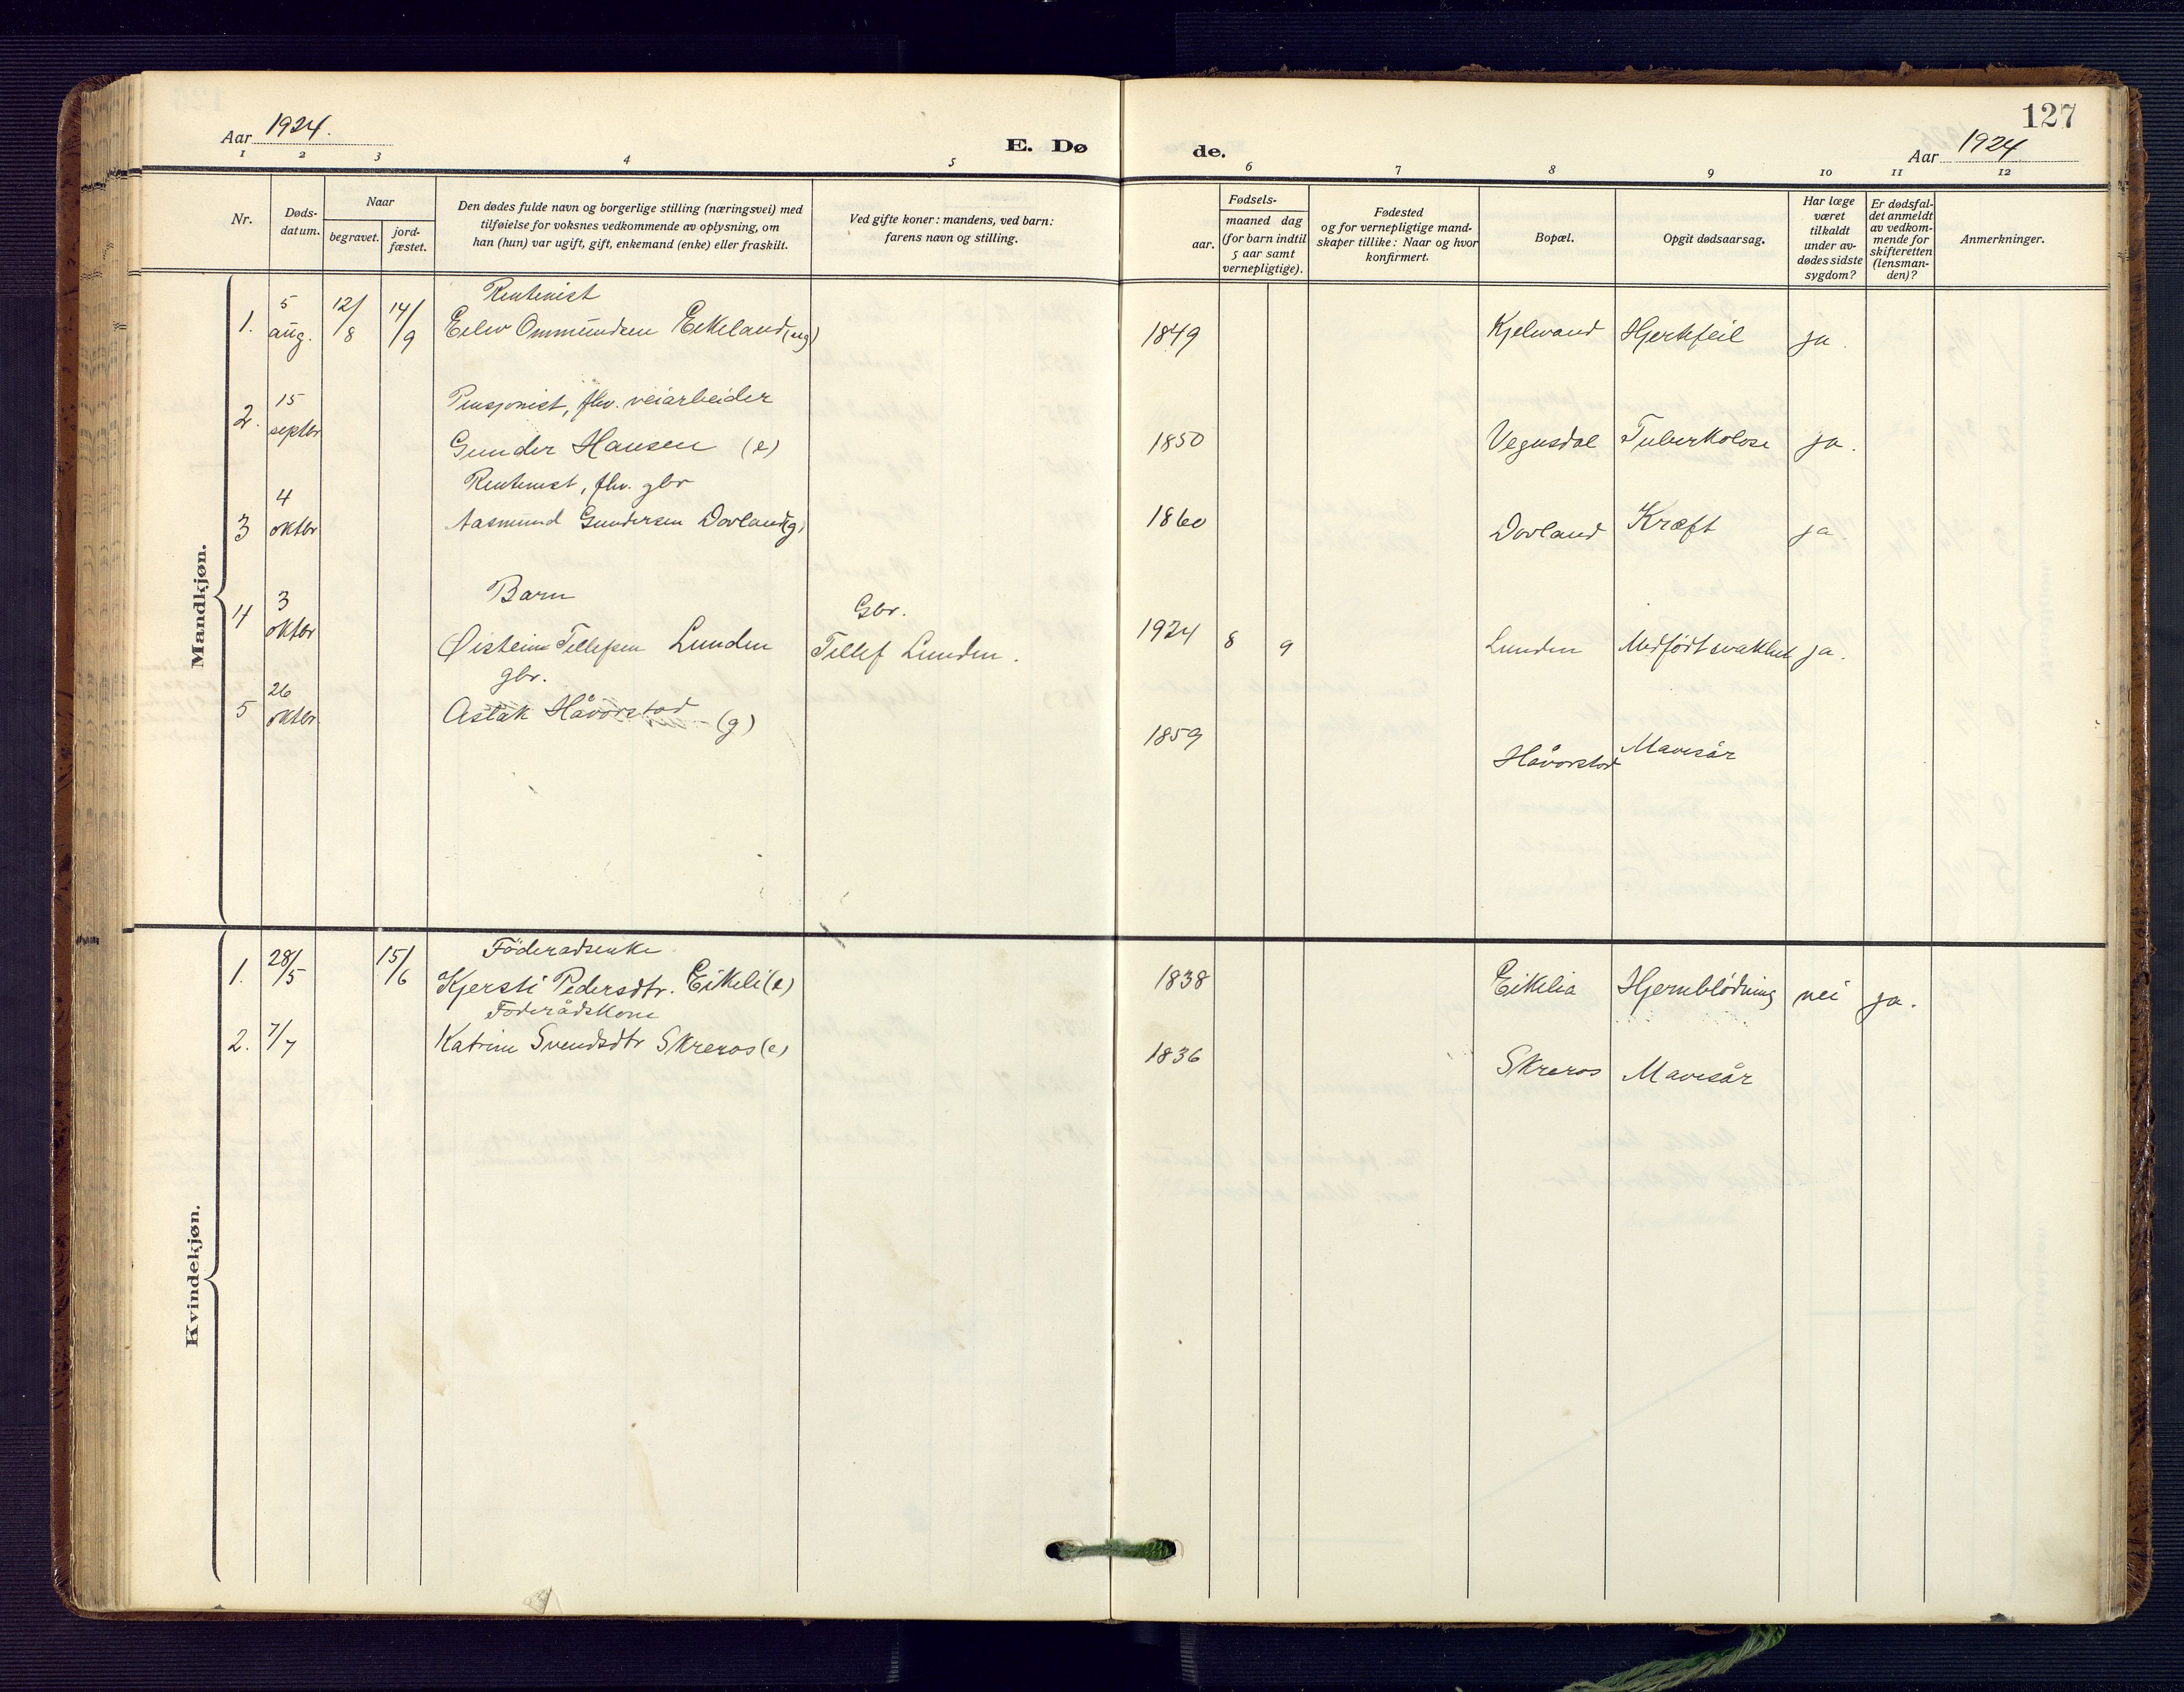 127
Aar 1924.
E. Dø
de.
Aar 1924
1 2 3 4 5 6 7 8 9 10 11 12
Nr.
Døds-
datum.
Naar
begravet.
jord-
fæstet.
Den dødes fulde navn og borgerlige stilling (næringsvei) med
tilføielse for voksnes vedkommende av oplysning, om
han (hun) var ugift, gift, enkemand (enke) eller fraskilt.
Ved gifte koner: mandens, ved barn:
farens navn og stilling.
Fødsels-
aar.
maaned dag
(for barn indtil
5 aar samt
vernepligtige).
Fødested
og for vernepligtige mand-
skaper tillike: Naar og hvor
konfirmert.
Bopæl.
Opgit dødsaarsag.
Har læge
været
tilkaldt
under av-
dødes sidste
sygdom?
Er dødsfal-
det anmeldt
av vedkom-
mende for
skifteretten
(lensman-
den)?
Anmerkninger.
Mandkjøn.
Rentenist
1. 5 aug. 12/8 14/9 Eilev Ommundsen Eikeland (ug) 1849 Hjertefeil ja
Pensjonist, fhv. veiarbeider
2. 15 septbr Gunder Hansen (e) 1850 Vegusdal Tuberkolose ja.
Rentenist, fhv. gbr
3 4 oktbr Aasmund Gundersen Dovland (g) 1860 Dovland Kræft ja
Barn
Gbr.
4 3 oktbr Øistein Tellefsen Lunden Tellef Lunden. 1924 8 9 Lunden Medfödt svakhet ja.
gbr.
5 26 oktbr Aslak Håvorstad (g) 1859 Håvorstad Mavesår
Kvindekjøn.
Föderadsenke
1. 28/5 15/6 Kjersti Pedersdtr. Eikeli (e) 1838 Eikelia Hjernblödning nei ja.
Föderådskone
2. 7/7 Katrine Svendsdtr Skreros (e) 1836 Skreros Mavesår